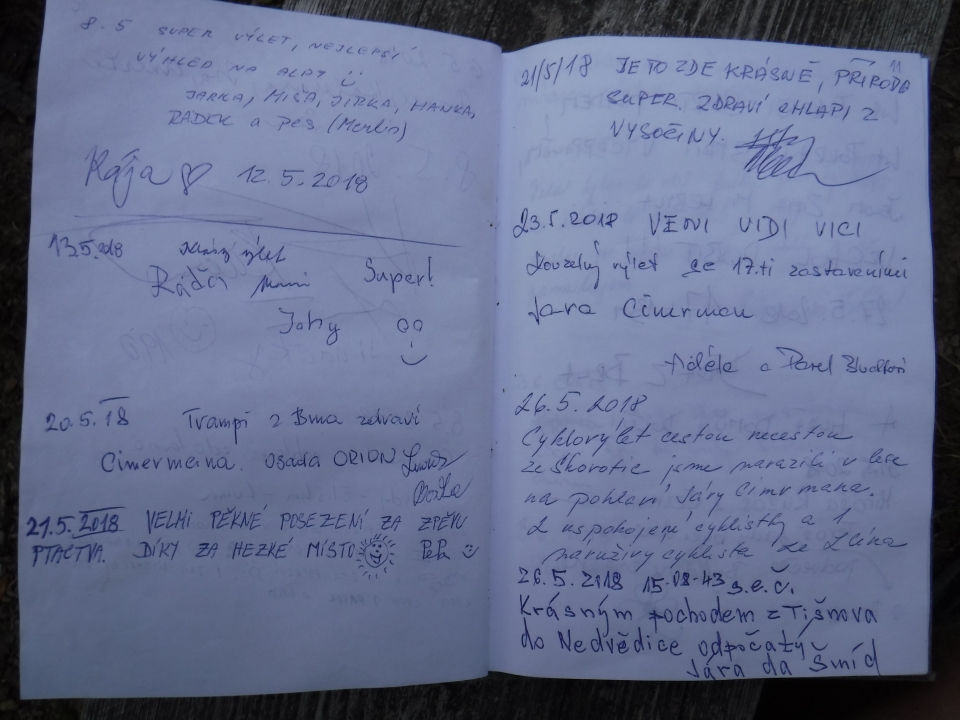 8.5 SUPER VÝLET, NEJLEPŠÍ
VÝHLED NA ALPY
JARKA, MÍŠA, JIRKA, HANKA,
RADEK a PES (Merlin)
Kája 12.5.2018
13.5.2018 výlet
Ráďa Super!
20.5.18 Trampi z Brna zdraví
Cimermana. Osada ORION
21.5.2018 VELMI PĚKNÉ POSEZENÍ ZA ZPĚVU
PTACTVA. DÍKY ZA HEZKÉ MÍSTO
11
21/5/18 JE TO ZDE KRÁSNĚ, PŘÍRODA
SUPER. ZDRAVÍ CHLAPI Z
VYSOČINY.
23.5.2018 VENI VIDI VICI
Kouzelný výlet se 17.ti zastaveními
Jara Cimrman
Adéla a Pavel
26.5.2018
Cyklovýlet cestou necestou
ze Skorotic jsme narazili v lese
na pohlaví Járy Cimrmana.
2 uspokojení cyklistky a 1
naruživý cyklista ze Zlína
26.5.2018 15-08-43 s.e.č.
Krásným pochodem z Tišnova
do Nedvědice odpočatý
Jára da Šmíd